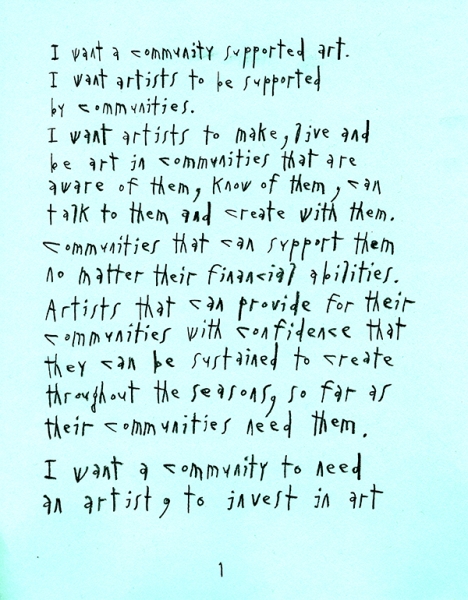 I want a community supported art.
I want artists to be supported
by communities.
I want artists to make, live and
be art in communities that are
aware of them, know of them, can
talk to them and create with them.
communities that can support them
no matter their financial abilities.
Artists that can provide for their
communities with confidence that
they can be sustained to create
throughout the seasons, so far as
their communities need them.
I want a community to need
an artist, to invest in art
1